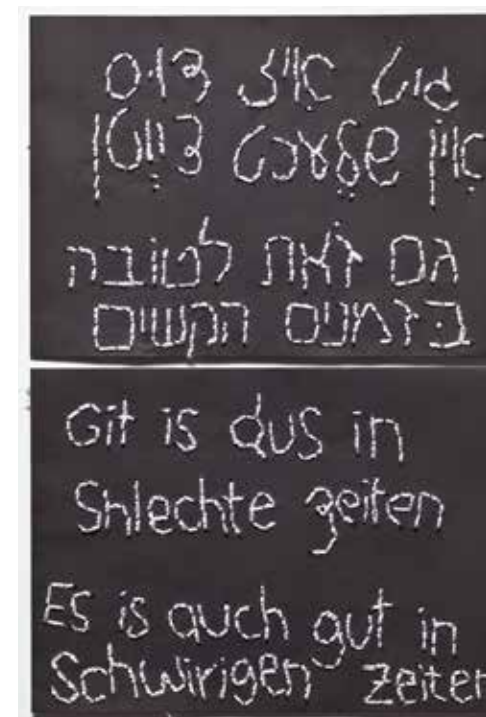 גיט איז דוס
אין שלעכט צייטן
גם זאת לטובה
בזמנים הקשים
Git is dus in
Shlechte zeiten
Es is auch gut in
Schwirigen zeiten